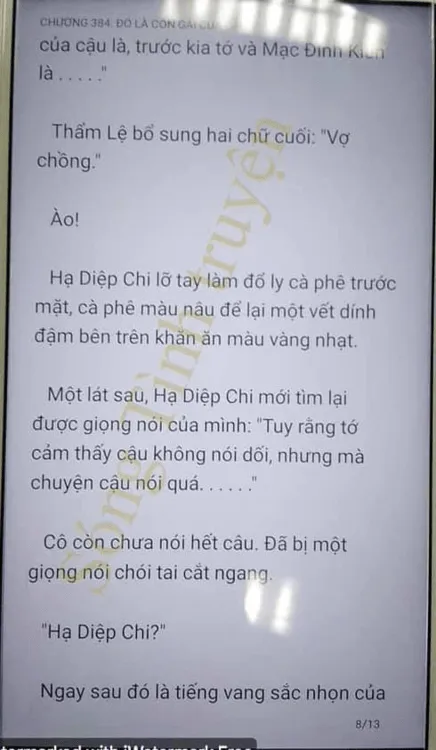 CHƯƠNG 384: ĐÓ LÀ CON GÁI
của cậu là, trước kia tớ và Mạc Đình Kiên
là . . . . ."
Thẩm Lệ bổ sung hai chữ cuối: "Vợ
chồng."
Ào!
Hạ Diệp Chi lỡ tay làm đổ ly cà phê trước
mặt, cà phê màu nâu để lại một vết dính
đậm bên trên khăn ăn màu vàng nhạt.
Một lát sau, Hạ Diệp Chi mới tìm lại
được giọng nói của mình: "Tuy rằng tớ
cảm thấy cậu không nói dối, nhưng mà
chuyện cậu nói quá. . . . . ."
Cô còn chưa nói hết câu. Đã bị một
giọng nói chói tai cắt ngang.
"Hạ Diệp Chi?"
Ngay sau đó là tiếng vang sắc nhọn của
8/13
Sóng Tình truyện